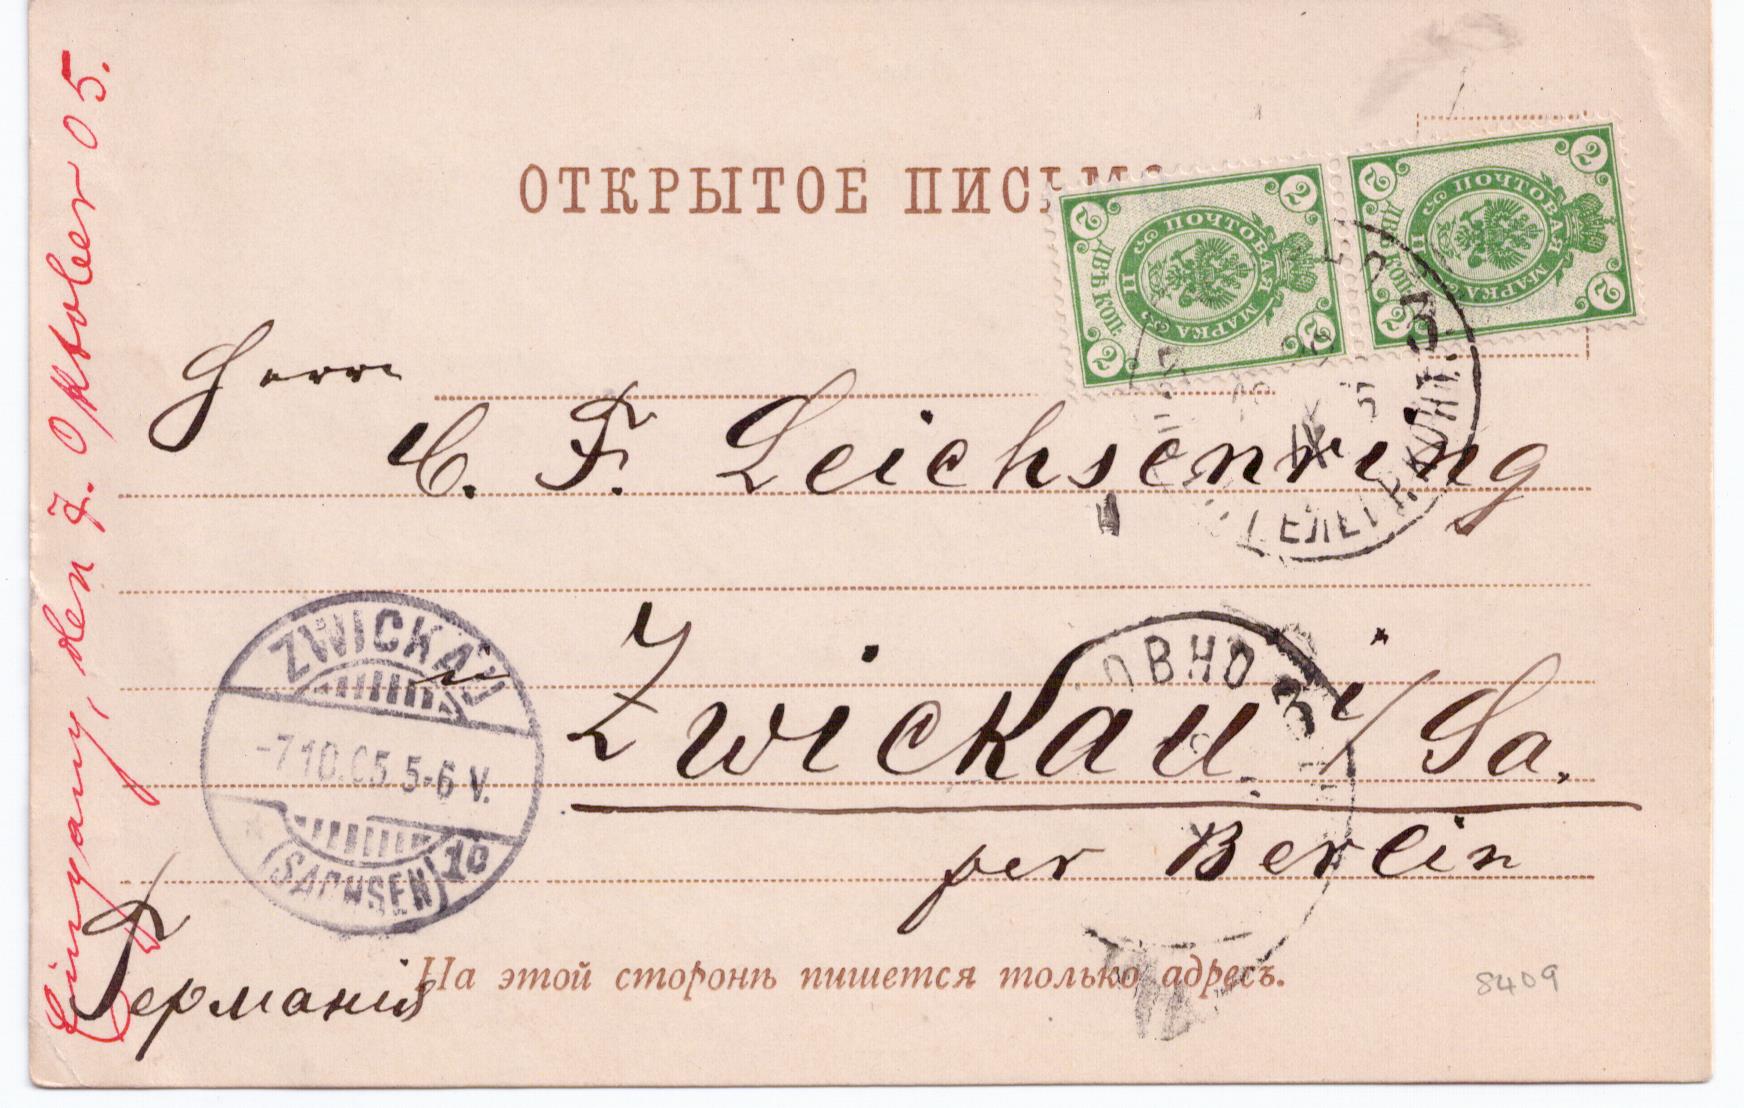 ОТКРЫТОЕ ПИСЬМО
2 2 2 2
ПОЧТОВАЯ МАРКА
ДВѢ КОП.
2 2 2 2
ПОЧТОВАЯ МАРКА
ДВѢ КОП.
3
IX
Herrn
C. F. Leichsenring
Zwickau i/Sa.
per Berlin
ZWICKAU
-7.10.05.5-6 V.
(SACHSEN) 10
ОВНО
3
Германія
На этой сторонѣ пишется только адресъ.
8409
Eingang, den 7. Oktober 05.